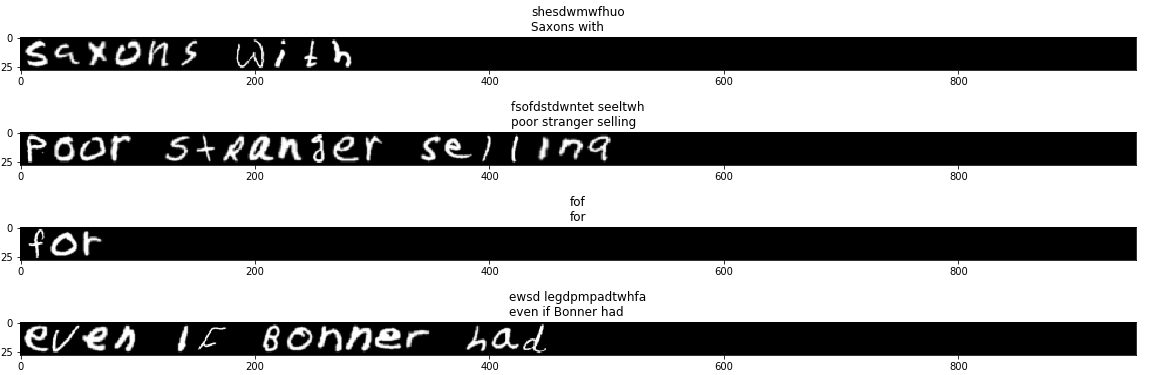 shesdwmwfhuo
Saxons with
0
saxons with
25
0 200 400 600 800
fsofdstdwntet seeltwh
poor stranger selling
0
Poor stranger selling
25
0 200 400 600 800
fof
for
0
for
25
0 200 400 600 800
ewsd legdpmpadtwhfa
even if Bonner had
0
even IF Bonner had
25
0 200 400 600 800